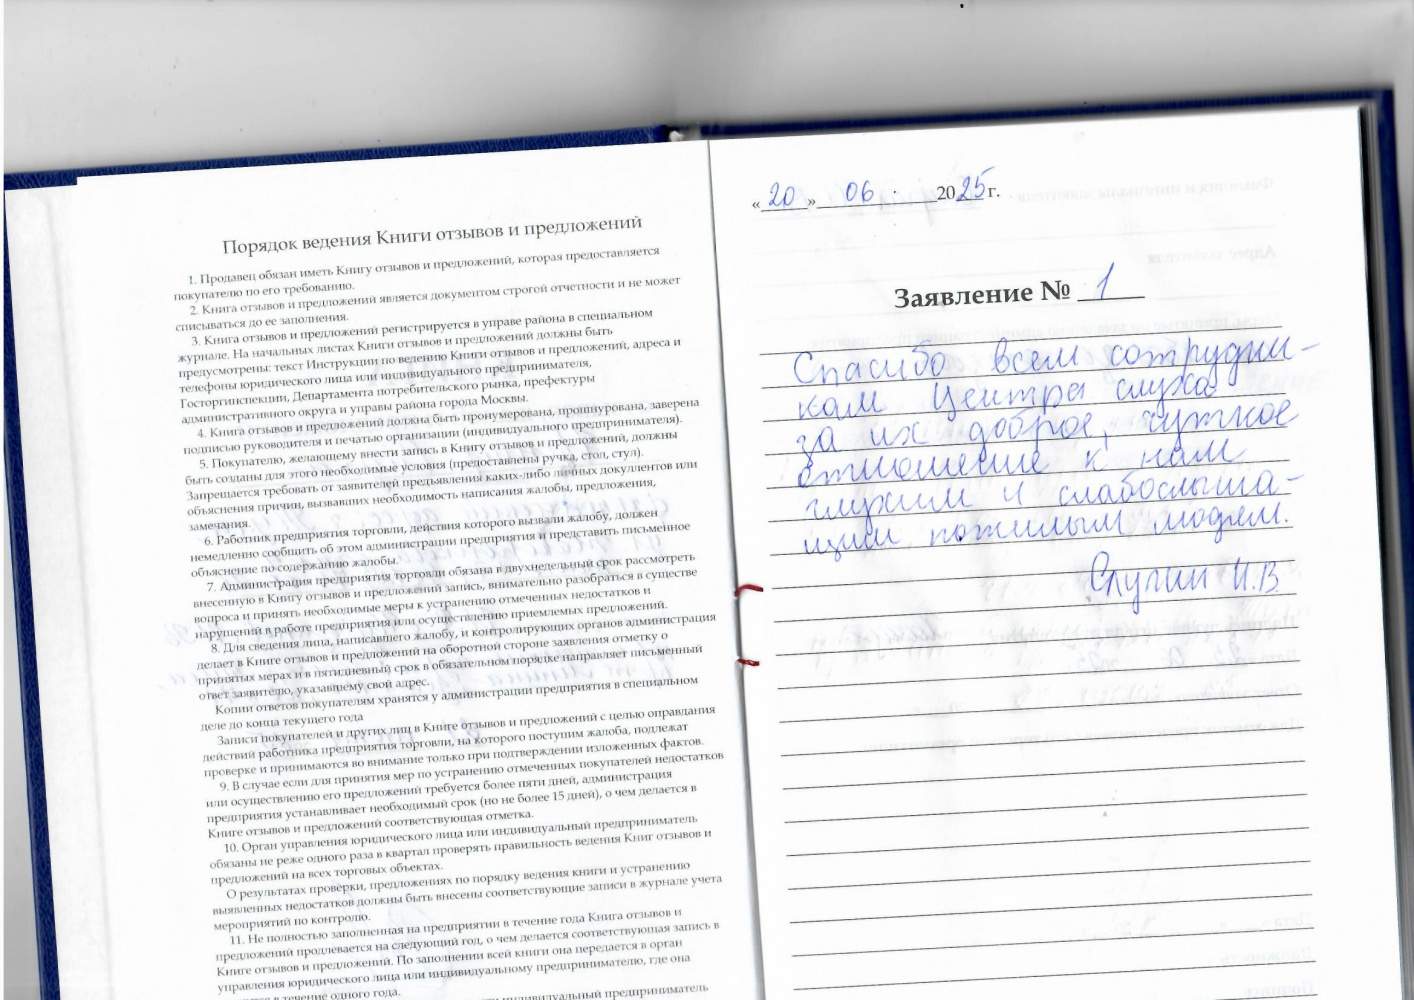 Порядок ведения Книги отзывов и предложений
1. Продавец обязан иметь Книгу отзывов и предложений, которая предоставляется
покупателю по его требованию.
2. Книга отзывов и предложений является документом строгой отчетности и не может
списываться до ее заполнения.
3. Книга отзывов и предложений регистрируется в управе района в специальном
журнале. На начальных листах Книги отзывов и предложений должны быть
предусмотрены: текст Инструкции по ведению Книги отзывов и предложений, адреса и
телефоны юридического лица или индивидуального предпринимателя,
Госторгинспекции, Департамента потребительского рынка, префектуры
административного округа и управы района города Москвы.
4. Книга отзывов и предложений должна быть пронумерована, прошнурована, заверена
подписью руководителя и печатью организации (индивидуального предпринимателя).
5. Покупателю, желающему внести запись в Книгу отзывов и предложений, должны
быть созданы для этого необходимые условия (предоставлены ручка, стол, стул).
Запрещается требовать от заявителей предъявления каких-либо личных докуллентов или
объяснения причин, вызвавших необходимость написания жалобы, предложения,
замечания.
6. Работник предприятия торговли, действия которого вызвали жалобу, должен
немедленно сообщить об этом администрации предприятия и представить письменное
объяснение по содержанию жалобы.
7. Администрация предприятия торговли обязана в двухнедельный срок рассмотреть
внесенную в Книгу отзывов и предложений запись, внимательно разобраться в существе
вопроса и принять необходимые меры к устранению отмеченных недостатков и
нарушений в работе предприятия или осуществлению приемлемых предложений.
8. Для сведения лица, написавшего жалобу, и контролирующих органов администрация
делает в Книге отзывов и предложений на оборотной стороне заявления отметку о
принятых мерах и в пятидневный срок в обязательном порядке направляет письменный
ответ заявителю, указавшему свой адрес.
Копии ответов покупателям хранятся у администрации предприятия в специальном
деле до конца текущего года
Записи покупателей и других лиц в Книге отзывов и предложений с целью оправдания
действий работника предприятия торговли, на которого поступим жалоба, подлежат
проверке и принимаются во внимание только при подтверждении изложенных фактов.
9. В случае если для принятия мер по устранению отмеченных покупателей недостатков
или осуществлению его предложений требуется более пяти дней, администрация
предприятия устанавливает необходимый срок (но не более 15 дней), о чем делается в
Книге отзывов и предложений соответствующая отметка.
10. Орган управления юридического лица или индивидуальный предприниматель
обязаны не реже одного раза в квартал проверять правильность ведения Книг отзывов и
предложений на всех торговых объектах.
О результатах проверки, предложениях по порядку ведения книги и устранению
выявленных недостатков должны быть внесены соответствующие записи в журнале учета
мероприятий по контролю.
11. Не полностью заполненная на предприятии в течение года Книга отзывов и
предложений продлевается на следующий год, о чем делается соответствующая запись в
Книге отзывов и предложений. По заполнении всей книги она передается в орган
управления юридического лица или индивидуальному предпринимателю, где она
в течение одного года.
индивидуальный предприниматель
«20» 06 2025 г.
Заявление № 1
Спасибо всем сотрудни-
кам Центра слуха
за их доброе, чуткое
отношение к нам
глухим и слабослыша-
щим пожилым людям.
И.В.